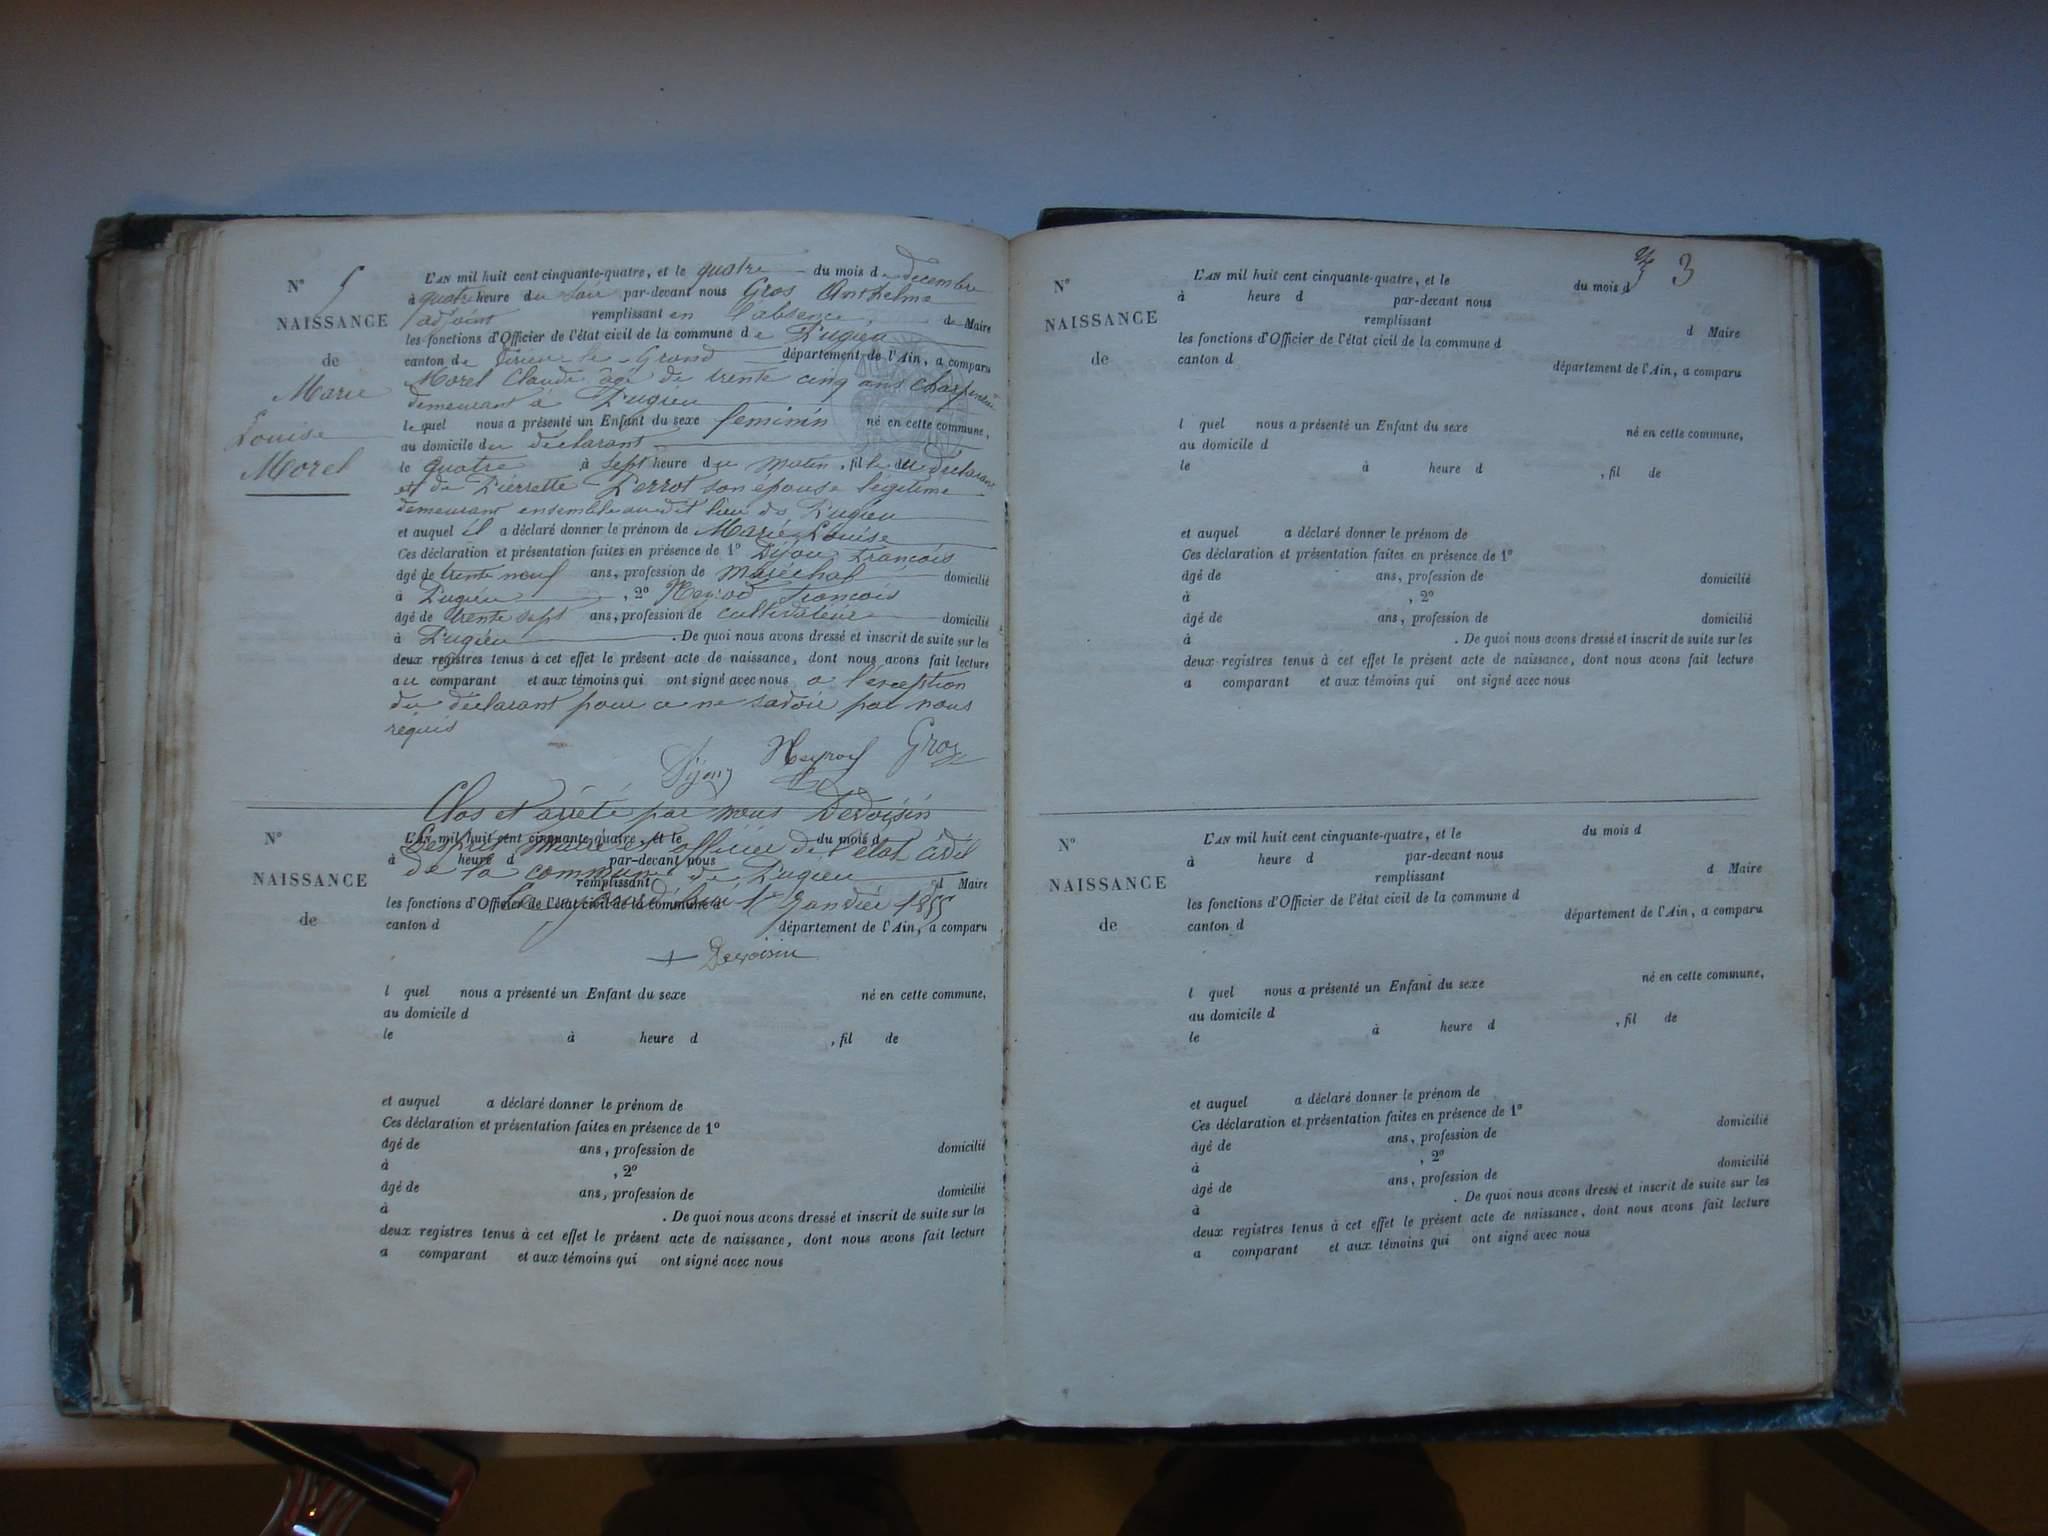 N° 5
NAISSANCE
de
Marie
Louise
Morel
L'AN mil huit cent cinquante-quatre, et le quatre du mois de decembre
à quatre heure du soir par-devant nous Gros Anthelme
adjoint remplissant en l'absence de Maire
les fonctions d'Officier de l'état civil de la commune de Pugieu
canton de Virieu le Grand département de l'Ain, a comparu
Morel Claude âgé de trente cinq ans charpentier
demeurant à Pugieu
lequel nous a présenté un Enfant du sexe feminin né en cette commune,
au domicile du déclarant
le quatre à sept heure du matin, fille du déclarant
et de Pierrette Perrot son épouse légitime
demeurant ensemble audit lieu de Pugieu
et auquel il a déclaré donner le prénom de Marie Louise
Ces déclaration et présentation faites en présence de 1° Dijon François
âgé de trente neuf ans, profession de Maréchal domicilié
à Pugieu, 2° François
âgé de trente sept ans, profession de cultivateur domicilié
à Pugieu. De quoi nous avons dressé et inscrit de suite sur les
deux registres tenus à cet effet le présent acte de naissance, dont nous avons fait lecture
au comparant et aux témoins qui ont signé avec nous a l'exception
du déclarant pour ce ne savoir par nous
requis
Dijon Gros
Clos et arrêté par nous Devoisin
maire et officier de l'état civil
de la commune de Pugieu
1er Janvier 1855
Devoisin
N°
NAISSANCE
de
L'AN mil huit cent cinquante-quatre, et le du mois d
à heure d par-devant nous
remplissant d Maire
les fonctions d'Officier de l'état civil de la commune d
canton d département de l'Ain, a comparu
l quel nous a présenté un Enfant du sexe né en cette commune,
au domicile d
le à heure d , fil de
et auquel a déclaré donner le prénom de
Ces déclaration et présentation faites en présence de 1°
âgé de ans, profession de domicilié
à , 2°
âgé de ans, profession de domicilié
à . De quoi nous avons dressé et inscrit de suite sur les
deux registres tenus à cet effet le présent acte de naissance, dont nous avons fait lecture
a comparant et aux témoins qui ont signé avec nous
3
N°
NAISSANCE
de
L'AN mil huit cent cinquante-quatre, et le du mois d
à heure d par-devant nous
remplissant d Maire
les fonctions d'Officier de l'état civil de la commune d
canton d département de l'Ain, a comparu
l quel nous a présenté un Enfant du sexe né en cette commune,
au domicile d
le à heure d , fil de
et auquel a déclaré donner le prénom de
Ces déclaration et présentation faites en présence de 1°
âgé de ans, profession de domicilié
à , 2°
âgé de ans, profession de domicilié
à . De quoi nous avons dressé et inscrit de suite sur les
deux registres tenus à cet effet le présent acte de naissance, dont nous avons fait lecture
a comparant et aux témoins qui ont signé avec nous
N°
NAISSANCE
de
L'AN mil huit cent cinquante-quatre, et le du mois d
à heure d par-devant nous
remplissant d Maire
les fonctions d'Officier de l'état civil de la commune d
canton d département de l'Ain, a comparu
l quel nous a présenté un Enfant du sexe né en cette commune,
au domicile d
le à heure d , fil de
et auquel a déclaré donner le prénom de
Ces déclaration et présentation faites en présence de 1°
âgé de ans, profession de domicilié
à , 2°
âgé de ans, profession de domicilié
à . De quoi nous avons dressé et inscrit de suite sur les
deux registres tenus à cet effet le présent acte de naissance, dont nous avons fait lecture
a comparant et aux témoins qui ont signé avec nous